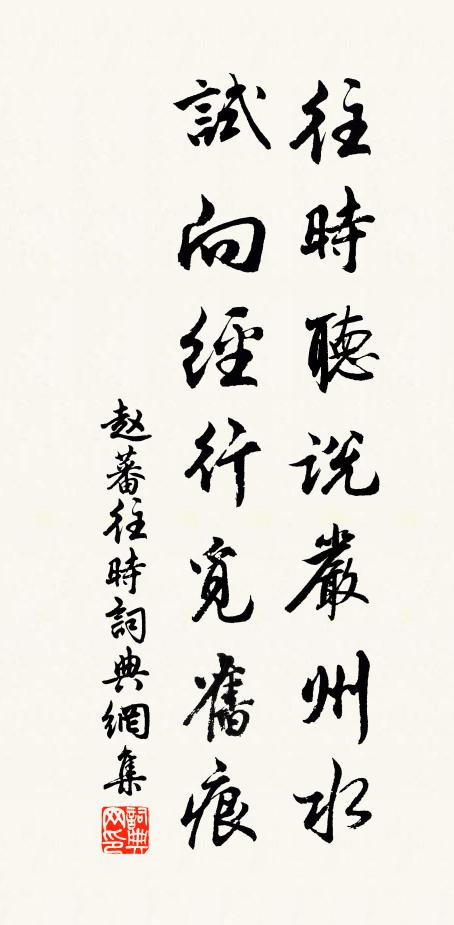 往時聽説嚴州水
試向經行覓舊痕
赵蕃往時詞典網集
詞典
网印